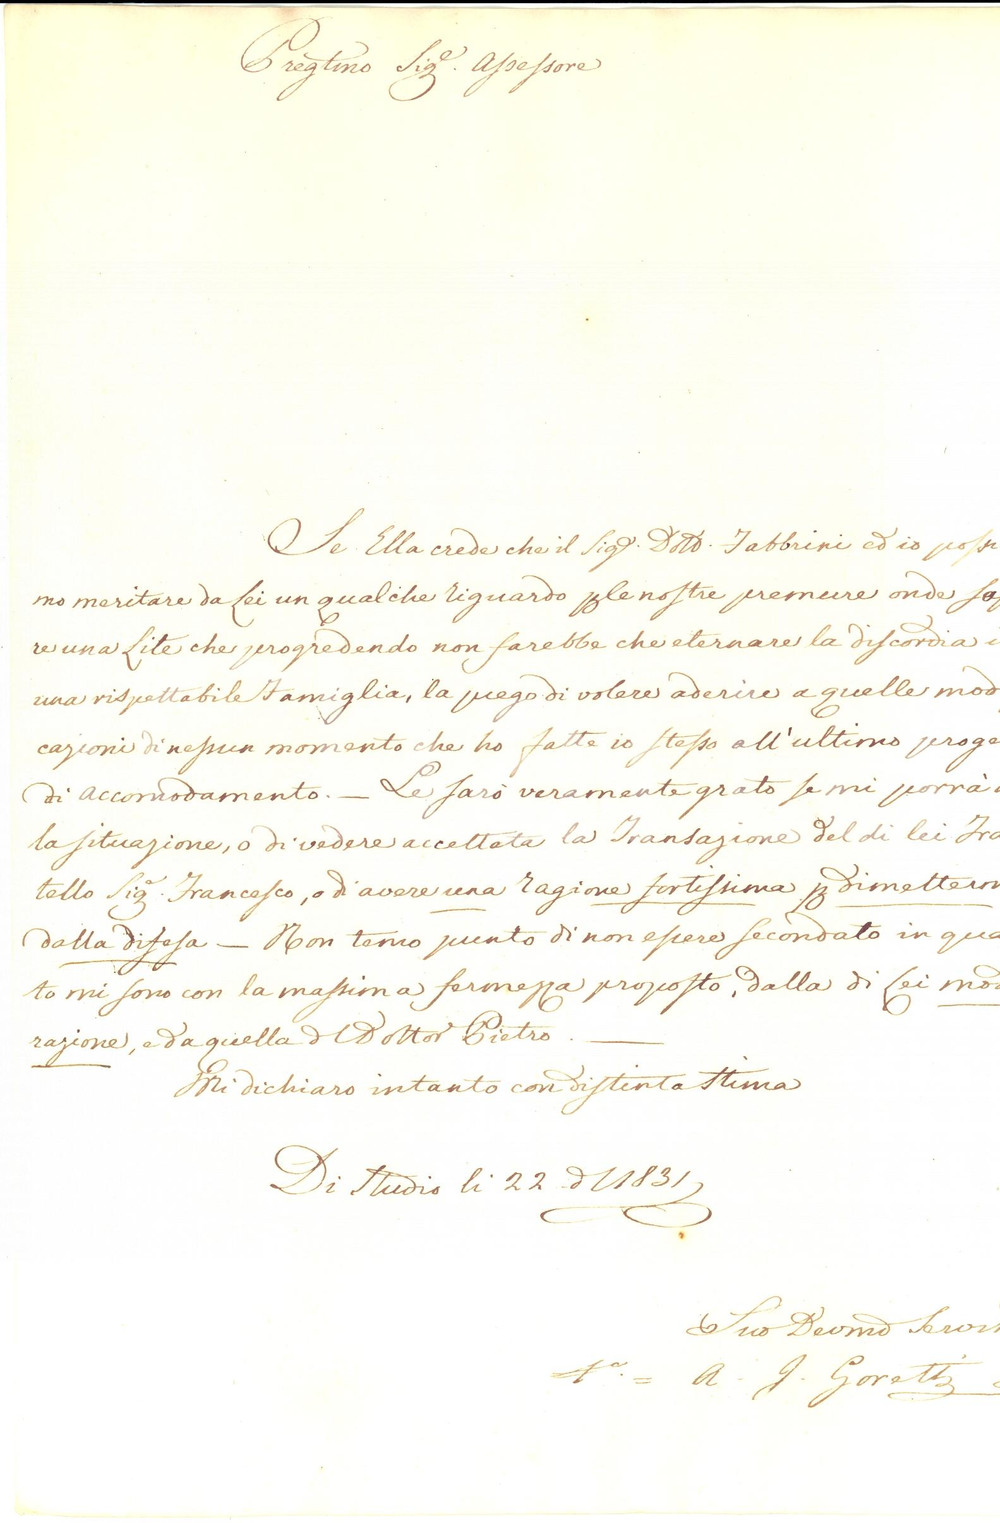 Pregtmo Sigre. Assessore
Se Ella crede che il Sigr. Dott. Fabbrini ed io possi
mo meritare da Lei un qualche riguardo p le nostre premure onde so
re una Lite che progredendo non farebbe che eternare la discordia i
una rispettabile Famiglia, la prego di volere aderire a quelle modi
cazioni di nessun momento che ho fatte io stesso all'ultimo proge
di accomodamento. — Le sarò veramente grato se mi porrà
la situazione, o di vedere accettata la Transazione del di lei Fra
tello Sigr. Francesco, o di avere una ragione fortissima p dimetterm
dalla difesa — Non temo punto di non essere secondato in qua
to mi sono con la massima fermezza proposto, dalla di Lei mode
razione, e da quella dl Dottor Pietro. —
Mi dichiaro intanto con distinta stima
Di Studio li 22 d 1831
Suo Devmo Servi
A. J. Goretti